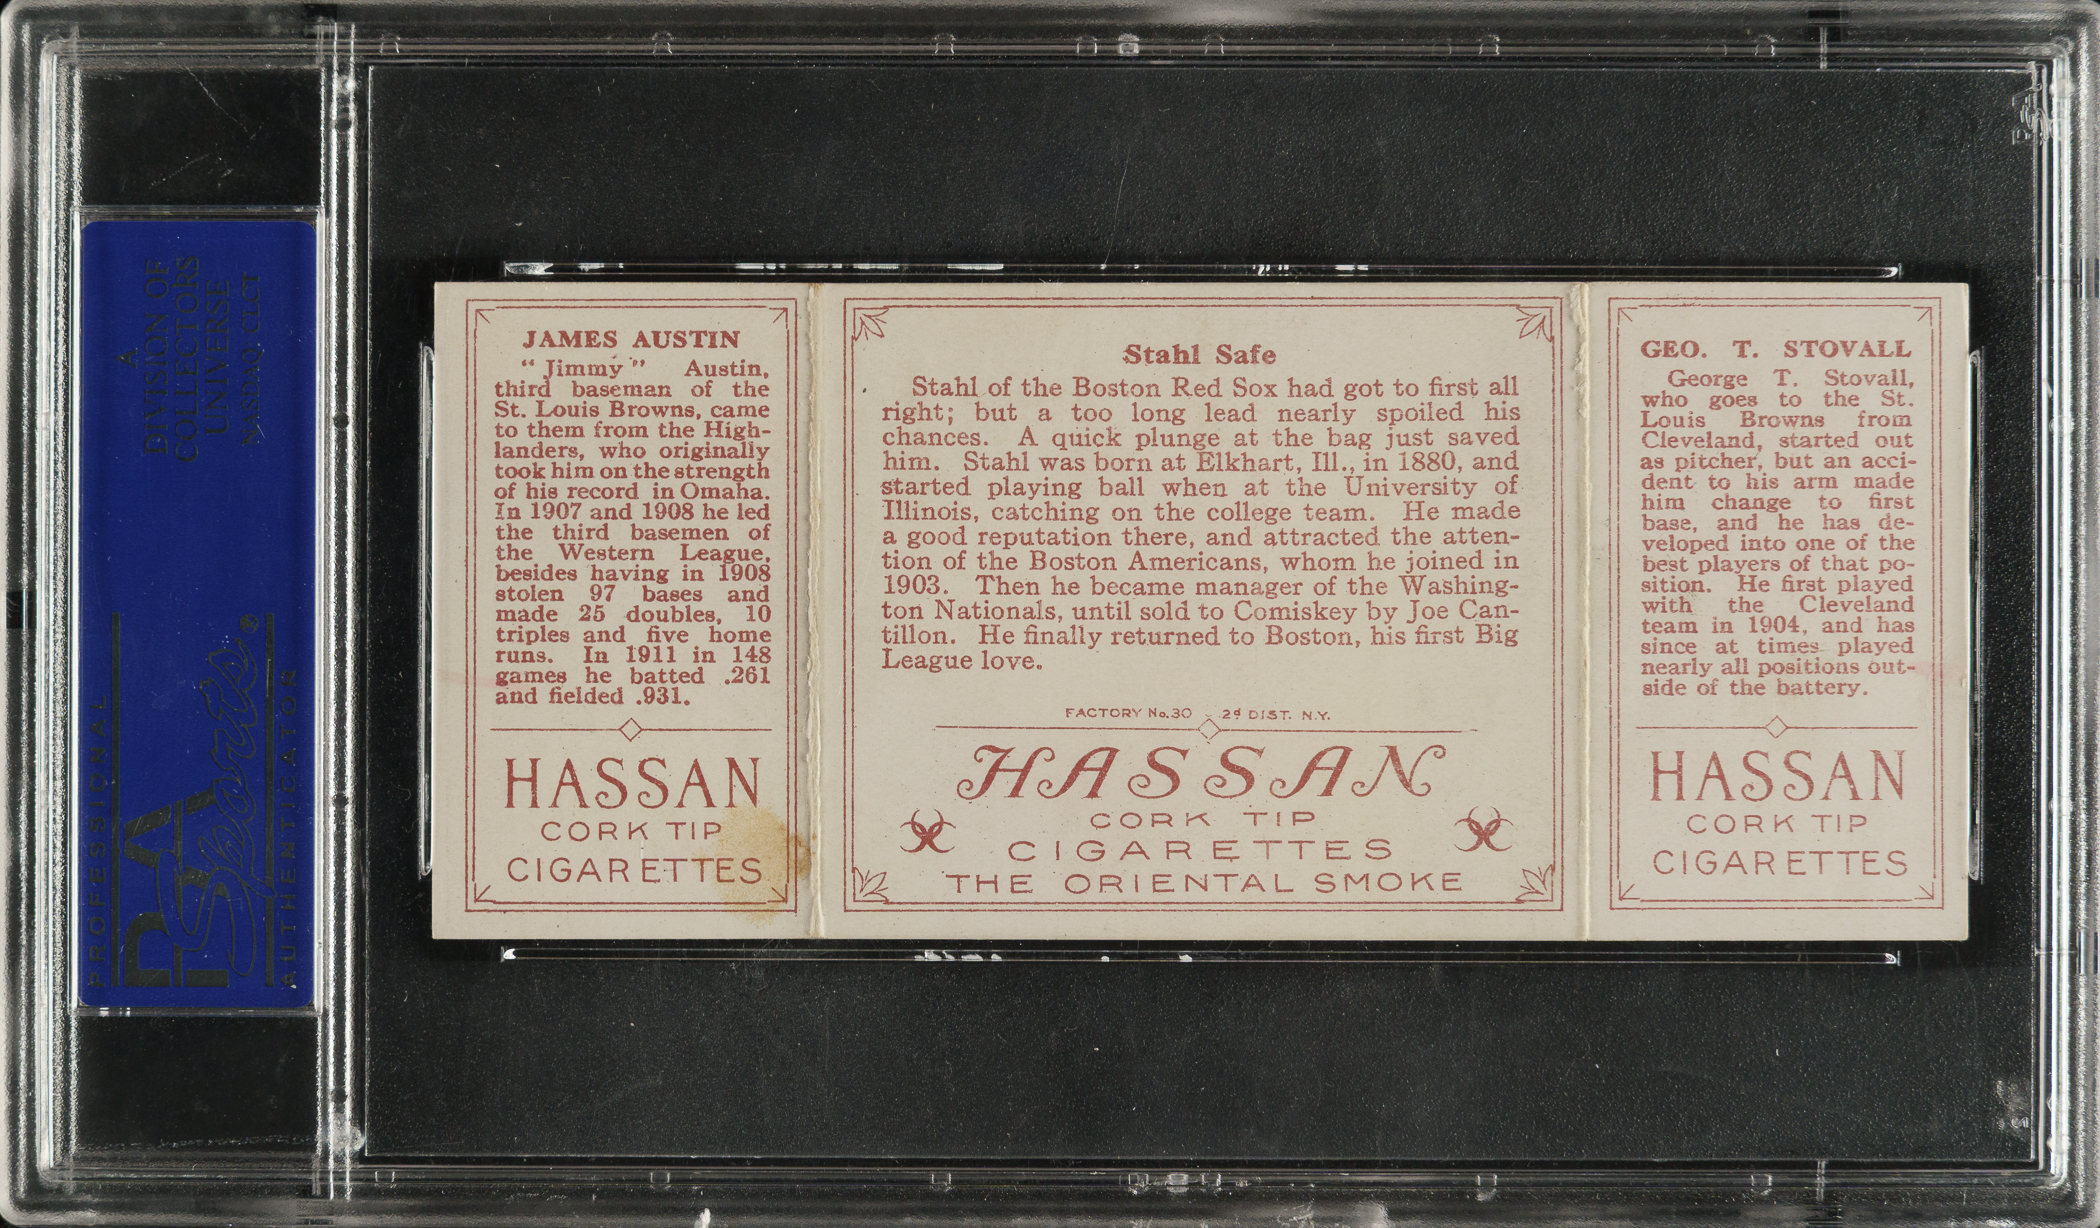 A
DIVISION OF
COLLECTORS
UNIVERSE
NASDAQ: CLCT
PROFESSIONAL
PSA
Sports®
AUTHENTICATOR
JAMES AUSTIN
“Jimmy” Austin,
third baseman of the
St. Louis Browns, came
to them from the High-
landers, who originally
took him on the strength
of his record in Omaha.
In 1907 and 1908 he led
the third basemen of
the Western League,
besides having in 1908
stolen 97 bases and
made 25 doubles, 10
triples and five home
runs. In 1911 in 148
games he batted .261
and fielded .931.
HASSAN
CORK TIP
CIGARETTES
Stahl Safe
Stahl of the Boston Red Sox had got to first all
right; but a too long lead nearly spoiled his
chances. A quick plunge at the bag just saved
him. Stahl was born at Elkhart, Ill., in 1880, and
started playing ball when at the University of
Illinois, catching on the college team. He made
a good reputation there, and attracted the atten-
tion of the Boston Americans, whom he joined in
1903. Then he became manager of the Washing-
ton Nationals, until sold to Comiskey by Joe Can-
tillon. He finally returned to Boston, his first Big
League love.
FACTORY No.30 2d DIST. N.Y.
HASSAN
CORK TIP
CIGARETTES
THE ORIENTAL SMOKE
GEO. T. STOVALL
George T. Stovall,
who goes to the St.
Louis Browns from
Cleveland, started out
as pitcher, but an acci-
dent to his arm made
him change to first
base, and he has de-
veloped into one of the
best players of that po-
sition. He first played
with the Cleveland
team in 1904, and has
since at times played
nearly all positions out-
side of the battery.
HASSAN
CORK TIP
CIGARETTES
PSA